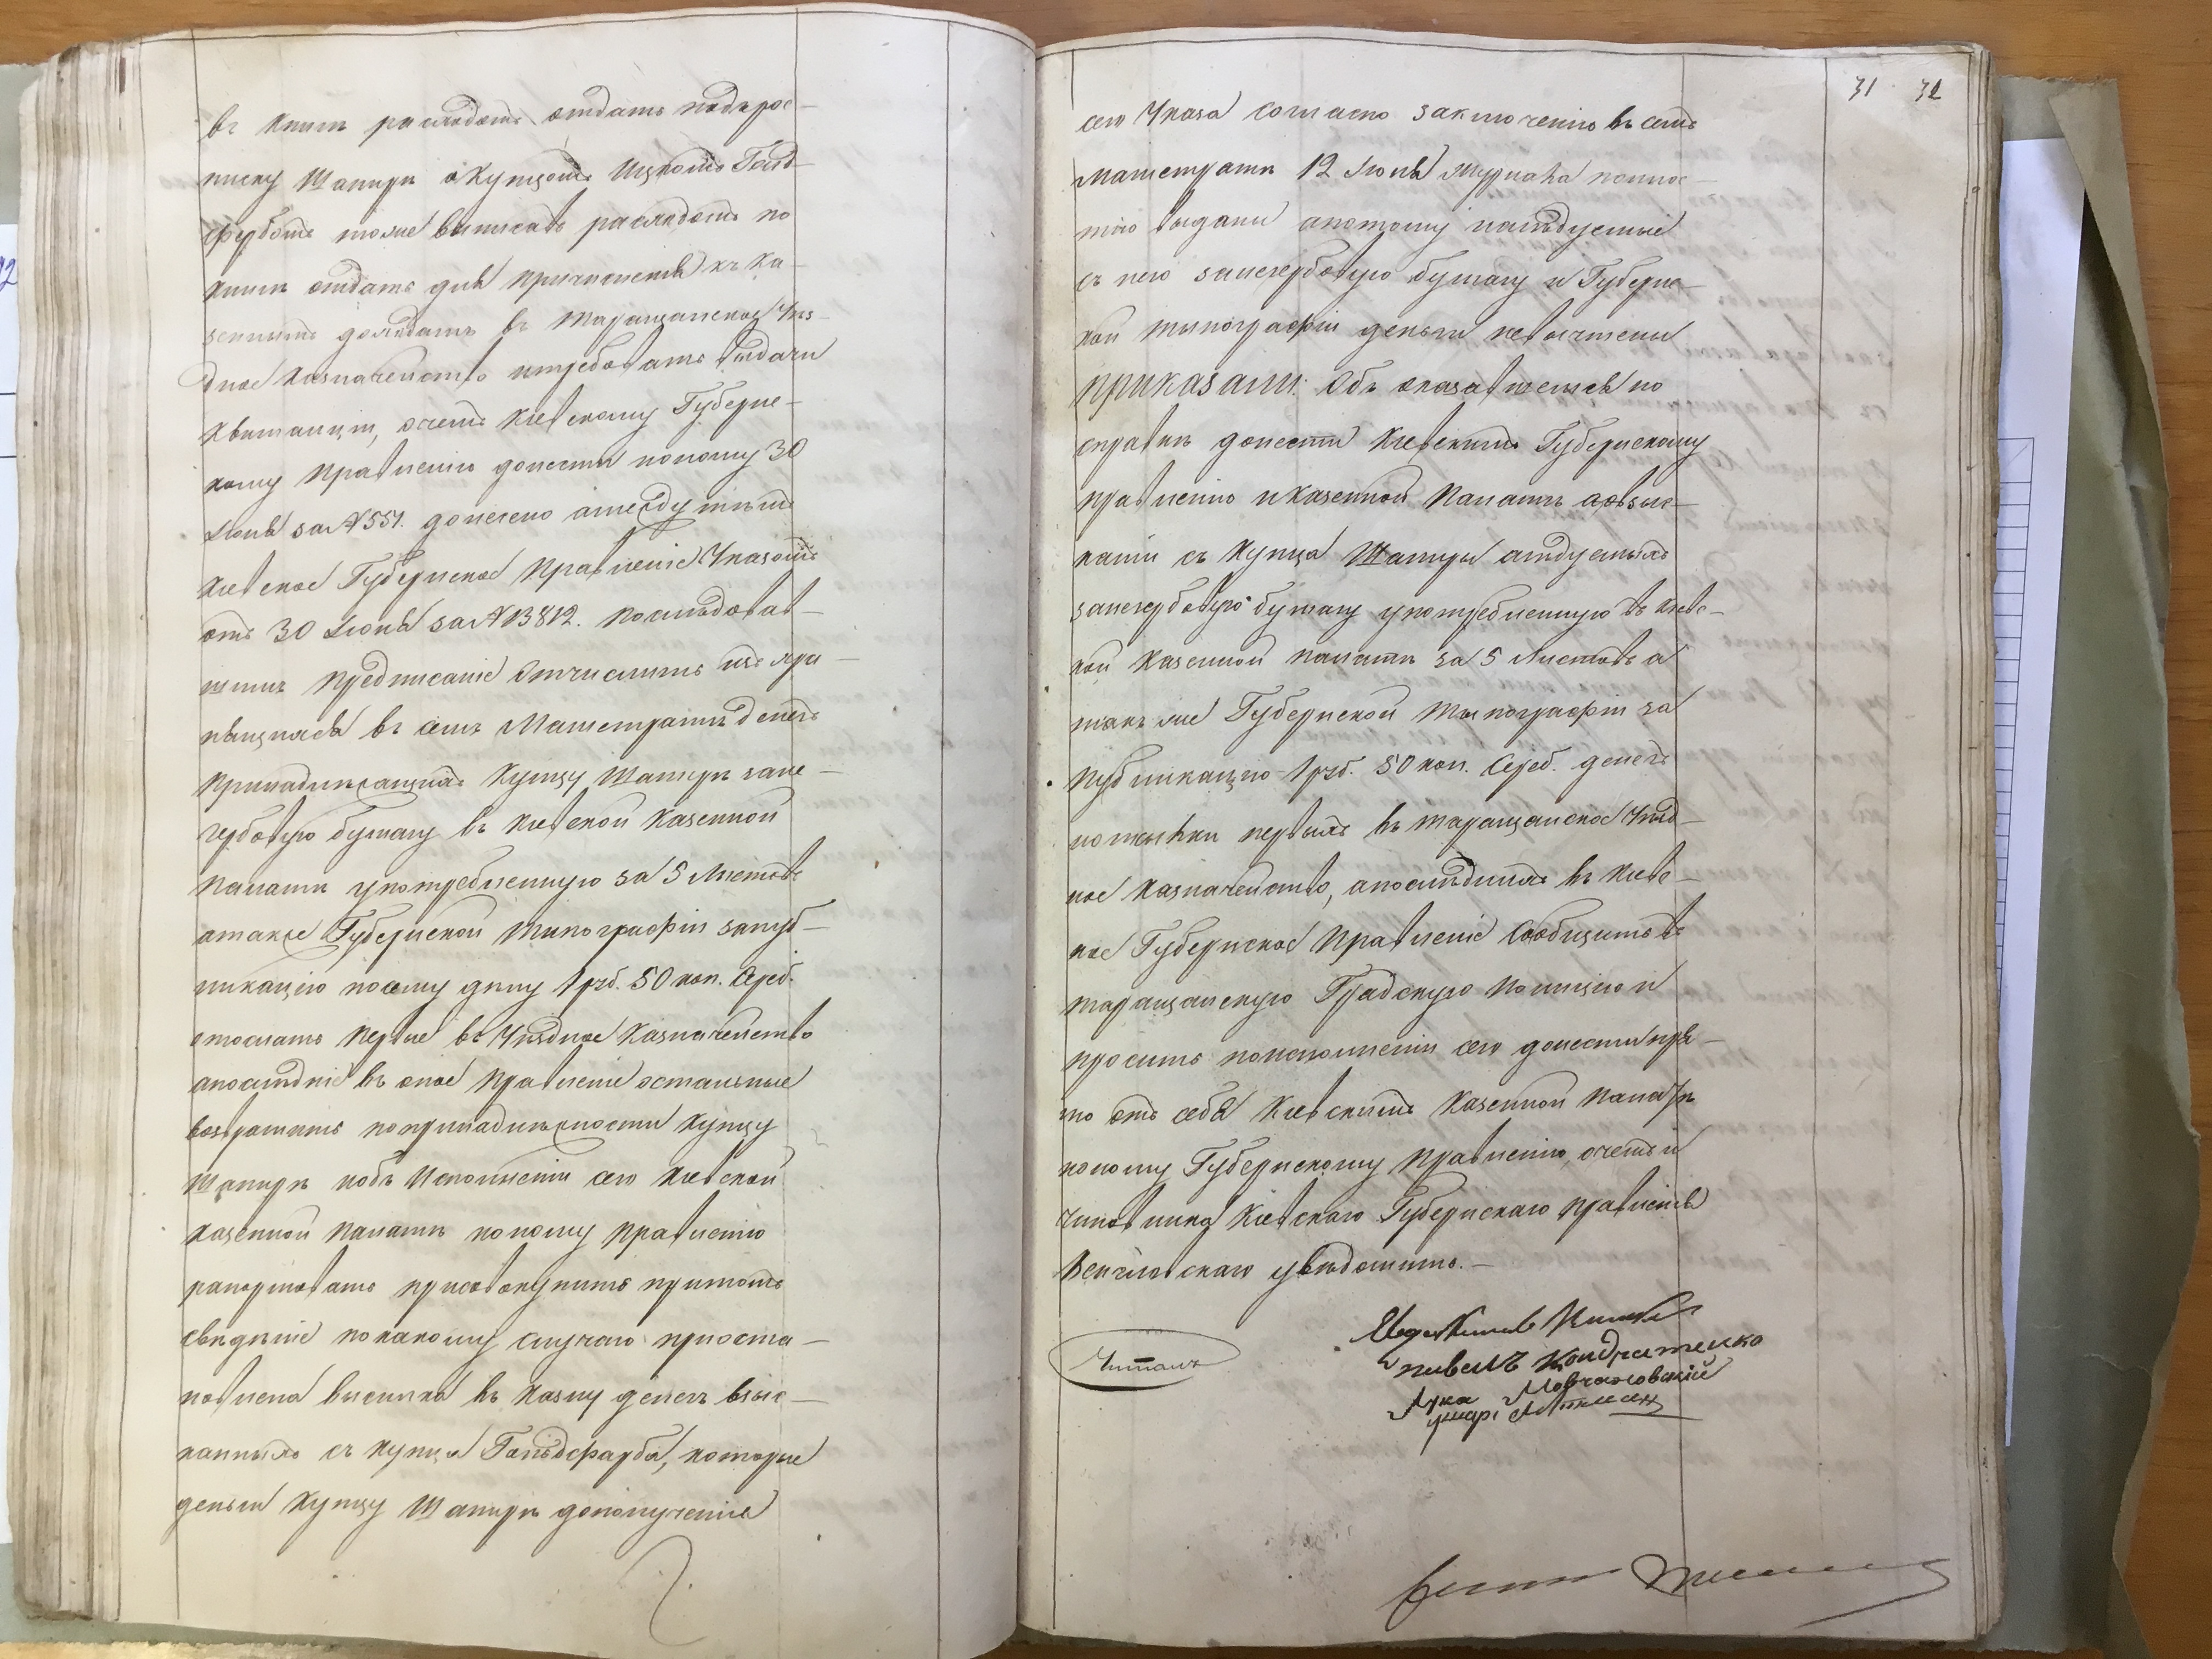 въ книгѣ расходомъ отдать подърос-
писку Шапирѣ акупцомъ Ицкомъ Голд-
фарбомъ тоже выписавъ расходомъ по
книгѣ отдать для причисленія къ ка-
зеннымъ доходамъ въ Таращанское Уѣз-
дное казначейство истребовать выдачи
Квитанціи, очемъ Кіевскому Губернс-
кому Правленію донести поколику 30
Іюня за №551. донесено а между тѣмъ
Кіевское Губернское Правленіе Указомъ
отъ 30 Іюня за №13812. послѣдовав-
шимъ предписаніе Отчислить изъ хра-
нящихся въ семъ Магистратѣ денегъ
принадлежащихъ Купцу Шапирѣ зане-
гербовую бумагу въ Кіевской Казенной
Палатѣ употребленную за 5 Листовъ
атакже Губернской Типографіи запуб-
ликацію посему дѣлу 1 руб. 50 коп. Сереб.
отослать первые въ Уѣздное Казначейство
апослѣдніе въ оное Правленіе остальные
возвратить попринадлежности Купцу
Шапирѣ иобъ Исполненіи сего Кіевской
Казенной Палатѣ ионому Правленію
рапортовать присовокупить притомъ
свѣдѣніе покакому случаю приоста-
новлена высылка въ казну денегъ взыс-
канныхъ съ купца Гольдфарба, которые
деньги Купцу Шапирѣ дополученія
31 32
сего Указа согласно заключенію въ семъ
Магистратѣ 12 Іюня Журнала полнос-
тію выданы апотому наслѣдуемые
съ него занегербовую бумагу и Губернс-
кой типографіи деньги невычтены
Приказали: Объ оказавшемся по
справкѣ донести Кіевскимъ Губернскому
Правленію иказенной Палатѣ аовзыс-
каніи съ Купца Шапиры слѣдуемыхъ
занегербовую бумагу употребленную въ Кіевс-
кой Казенной палатѣ за 5 Листовъ а
такъ же Губернской Типографіи за
публикацію 1 руб. 50 коп. Сереб. денегъ
иотсылки первыхъ въ Таращанское Уѣзд-
ное Казначейство, апослѣднихъ въ Кіевс-
кое Губернское Правленіе Сообщить въ
таращанскую Градскую Полицію и
просить поисполненіи сего донести пря-
мо отъ себя Кіевскимъ Казенной Палатѣ
ионому Губернскому Правленію, очемъ и
Чиновника Кіевскаго Губернскаго Правленія
увѣдомить.-
Читалъ
Кондратенко
Лука Мовчановскій